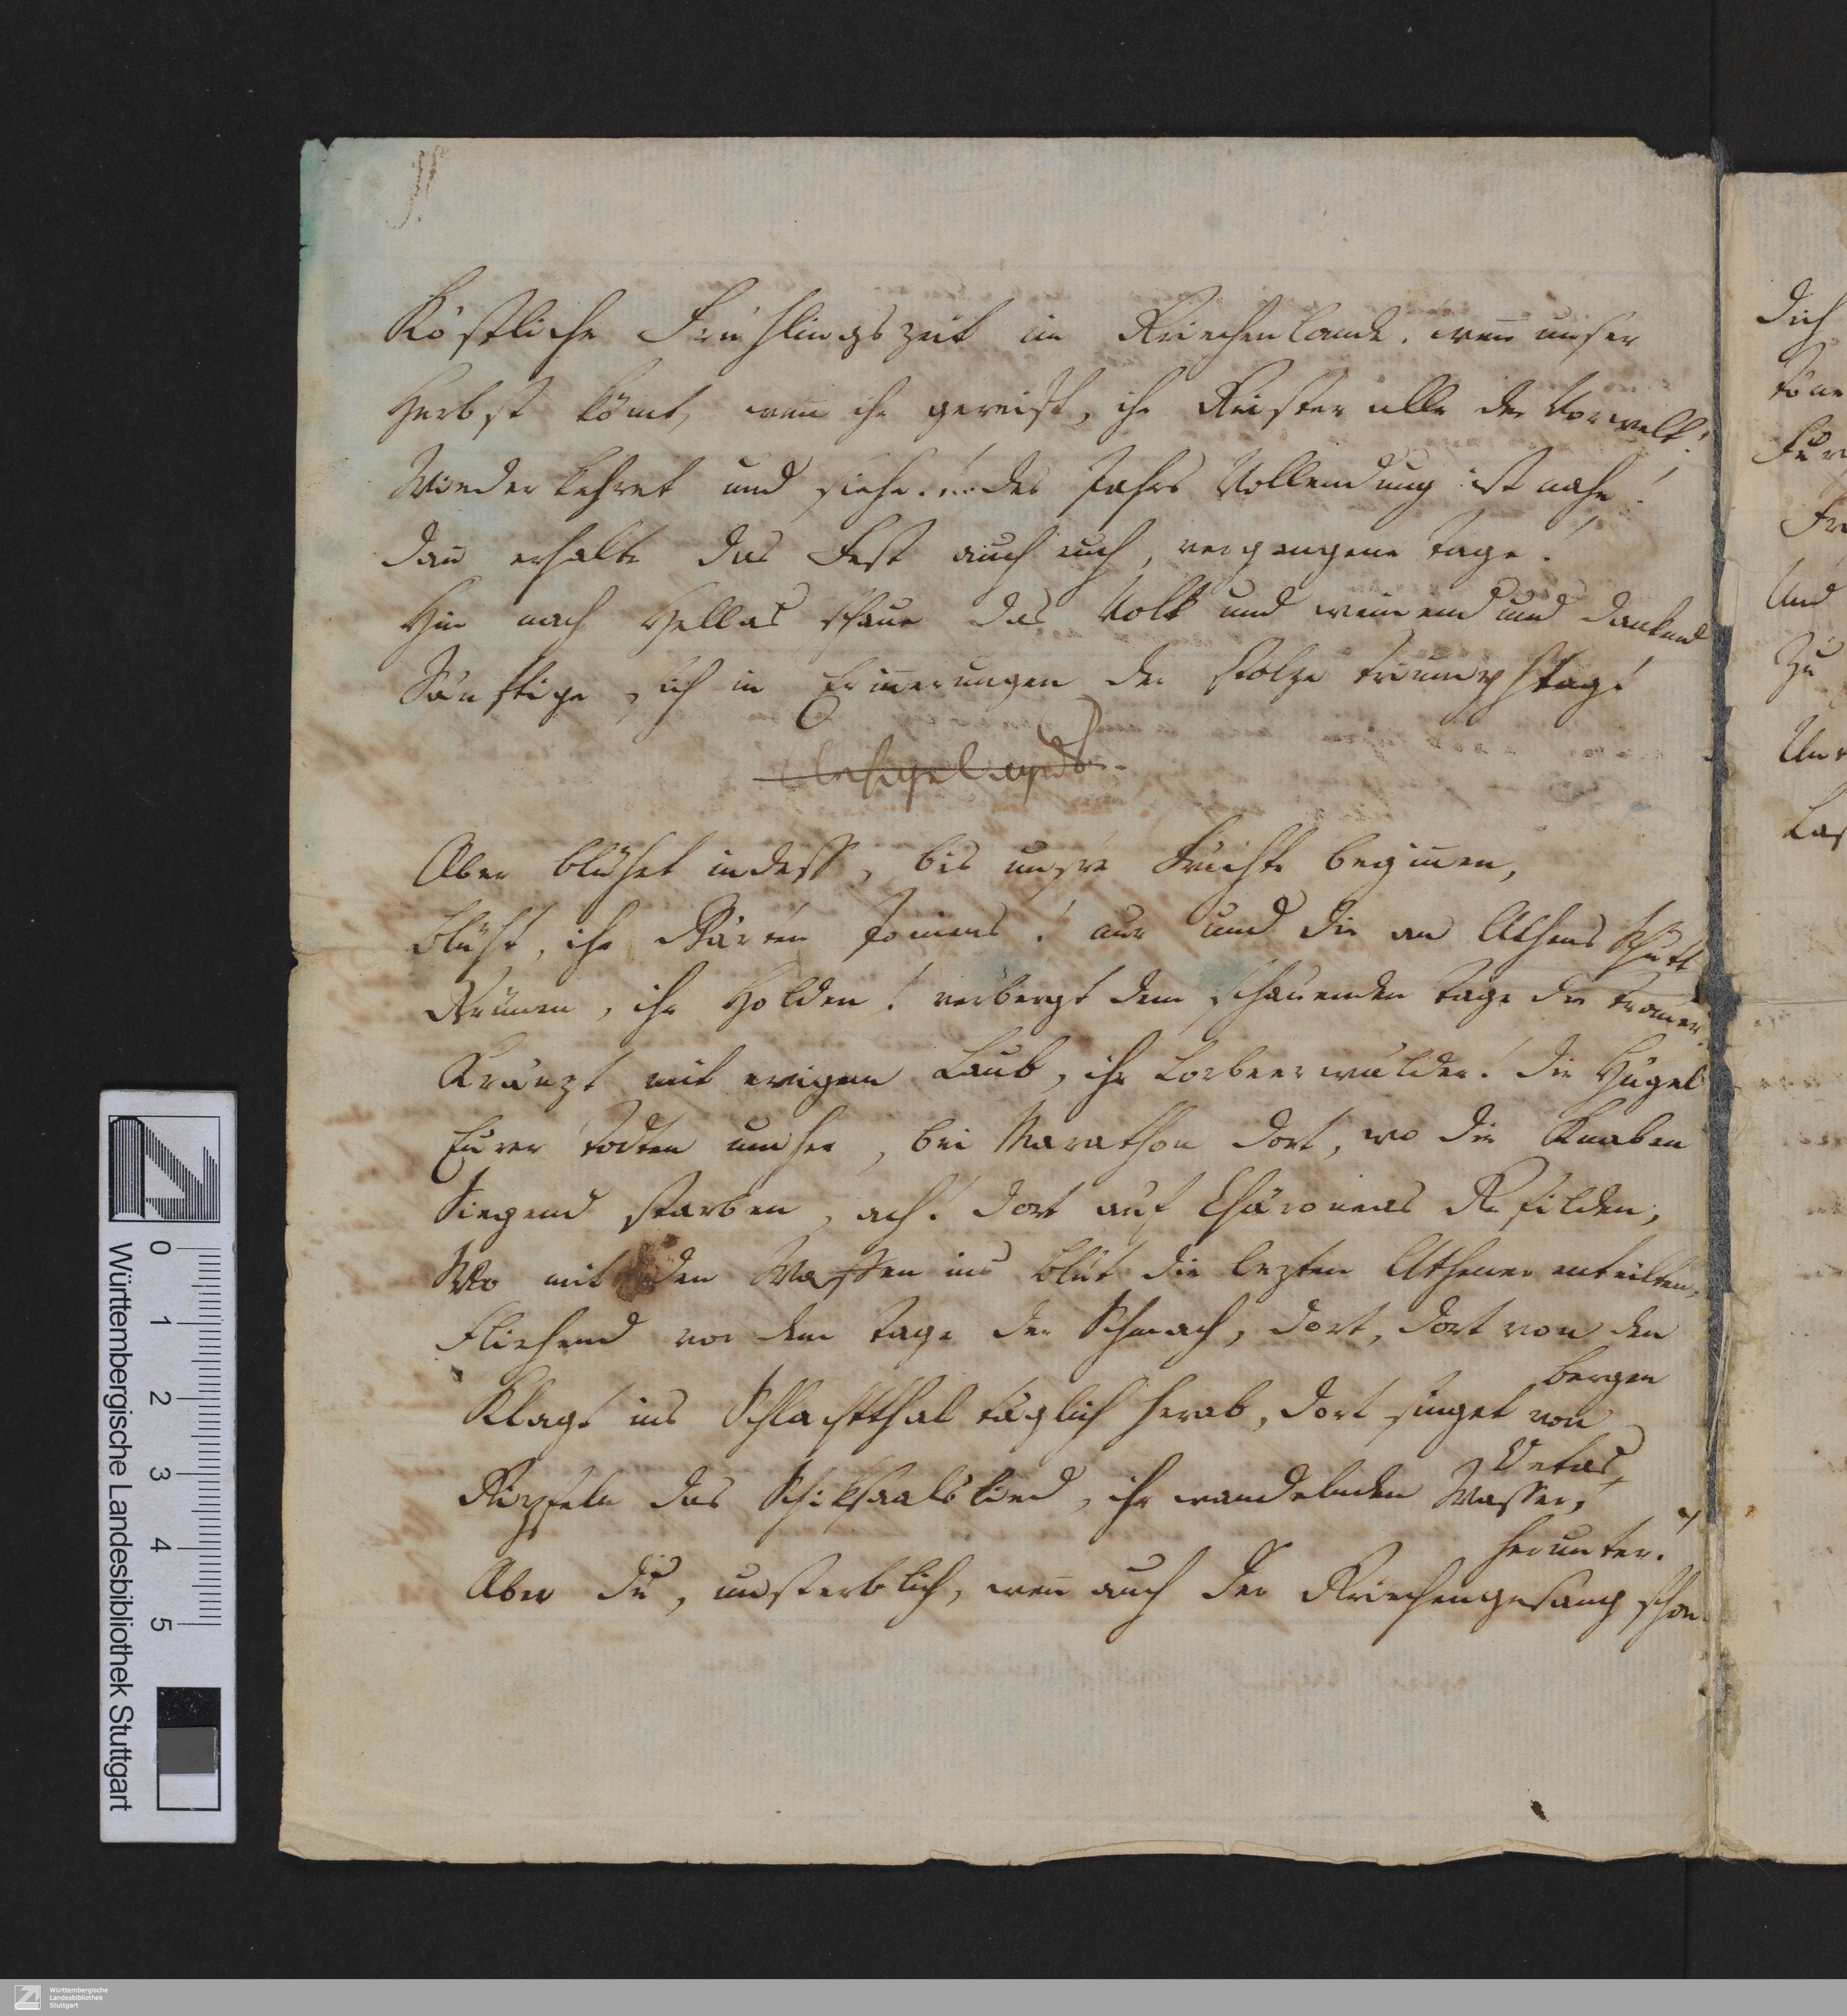 Köstliche Frühlingszeit im Griechenlande. wenn unser
Herbst kömt, wenn ihr gereift, ihr Geister alle der Vorwelt!
Wiederkehret und siehe! des Jahrs Vollendung ist nahe!
Dañ erhalte das Fest auch euch, vergangene Tage!
Hin nach Hellas schaue das Volk und weinend und dankend
Sänftige sich in Eriñerungen der stolze Triumphtag!
Aber blühet indeß, bis unsre Früchte begiñen,
Blüht, ihr Gärten Ioniens! nur und die an Athens Schutt
Grünen, ihr Holden! verbergt dem schauenden Tage die Trauer!
Kränzt mit ewigem Laub, ihr Lorbeerwälder! die Hügel
Eurer Todten umher, bei Marathon dort, wo die Knaben
Siegend starben, ach! dort auf Chäroneas Gefilden,
Wo mit den Waffen ins Blut die lezten Athener enteilten,
Fliehend vor dem Tage der Schmach, dort, dort von den
Bergen
Klagt ins Schlachtthal täglich herab, dort singet von
Oetas
Gipfeln das Schiksaalslied, ihr wandelnden Wasser,
herunter!
Aber du, unsterblich, weñ auch der Griechengesang schon
Dich
Töne
Für
Fr
Und
Zu
Und
Las
Württembergische Landesbibliothek Stuttgart
0 1 2 3 4 5
Württembergische
Landesbibliothek
Stuttgart